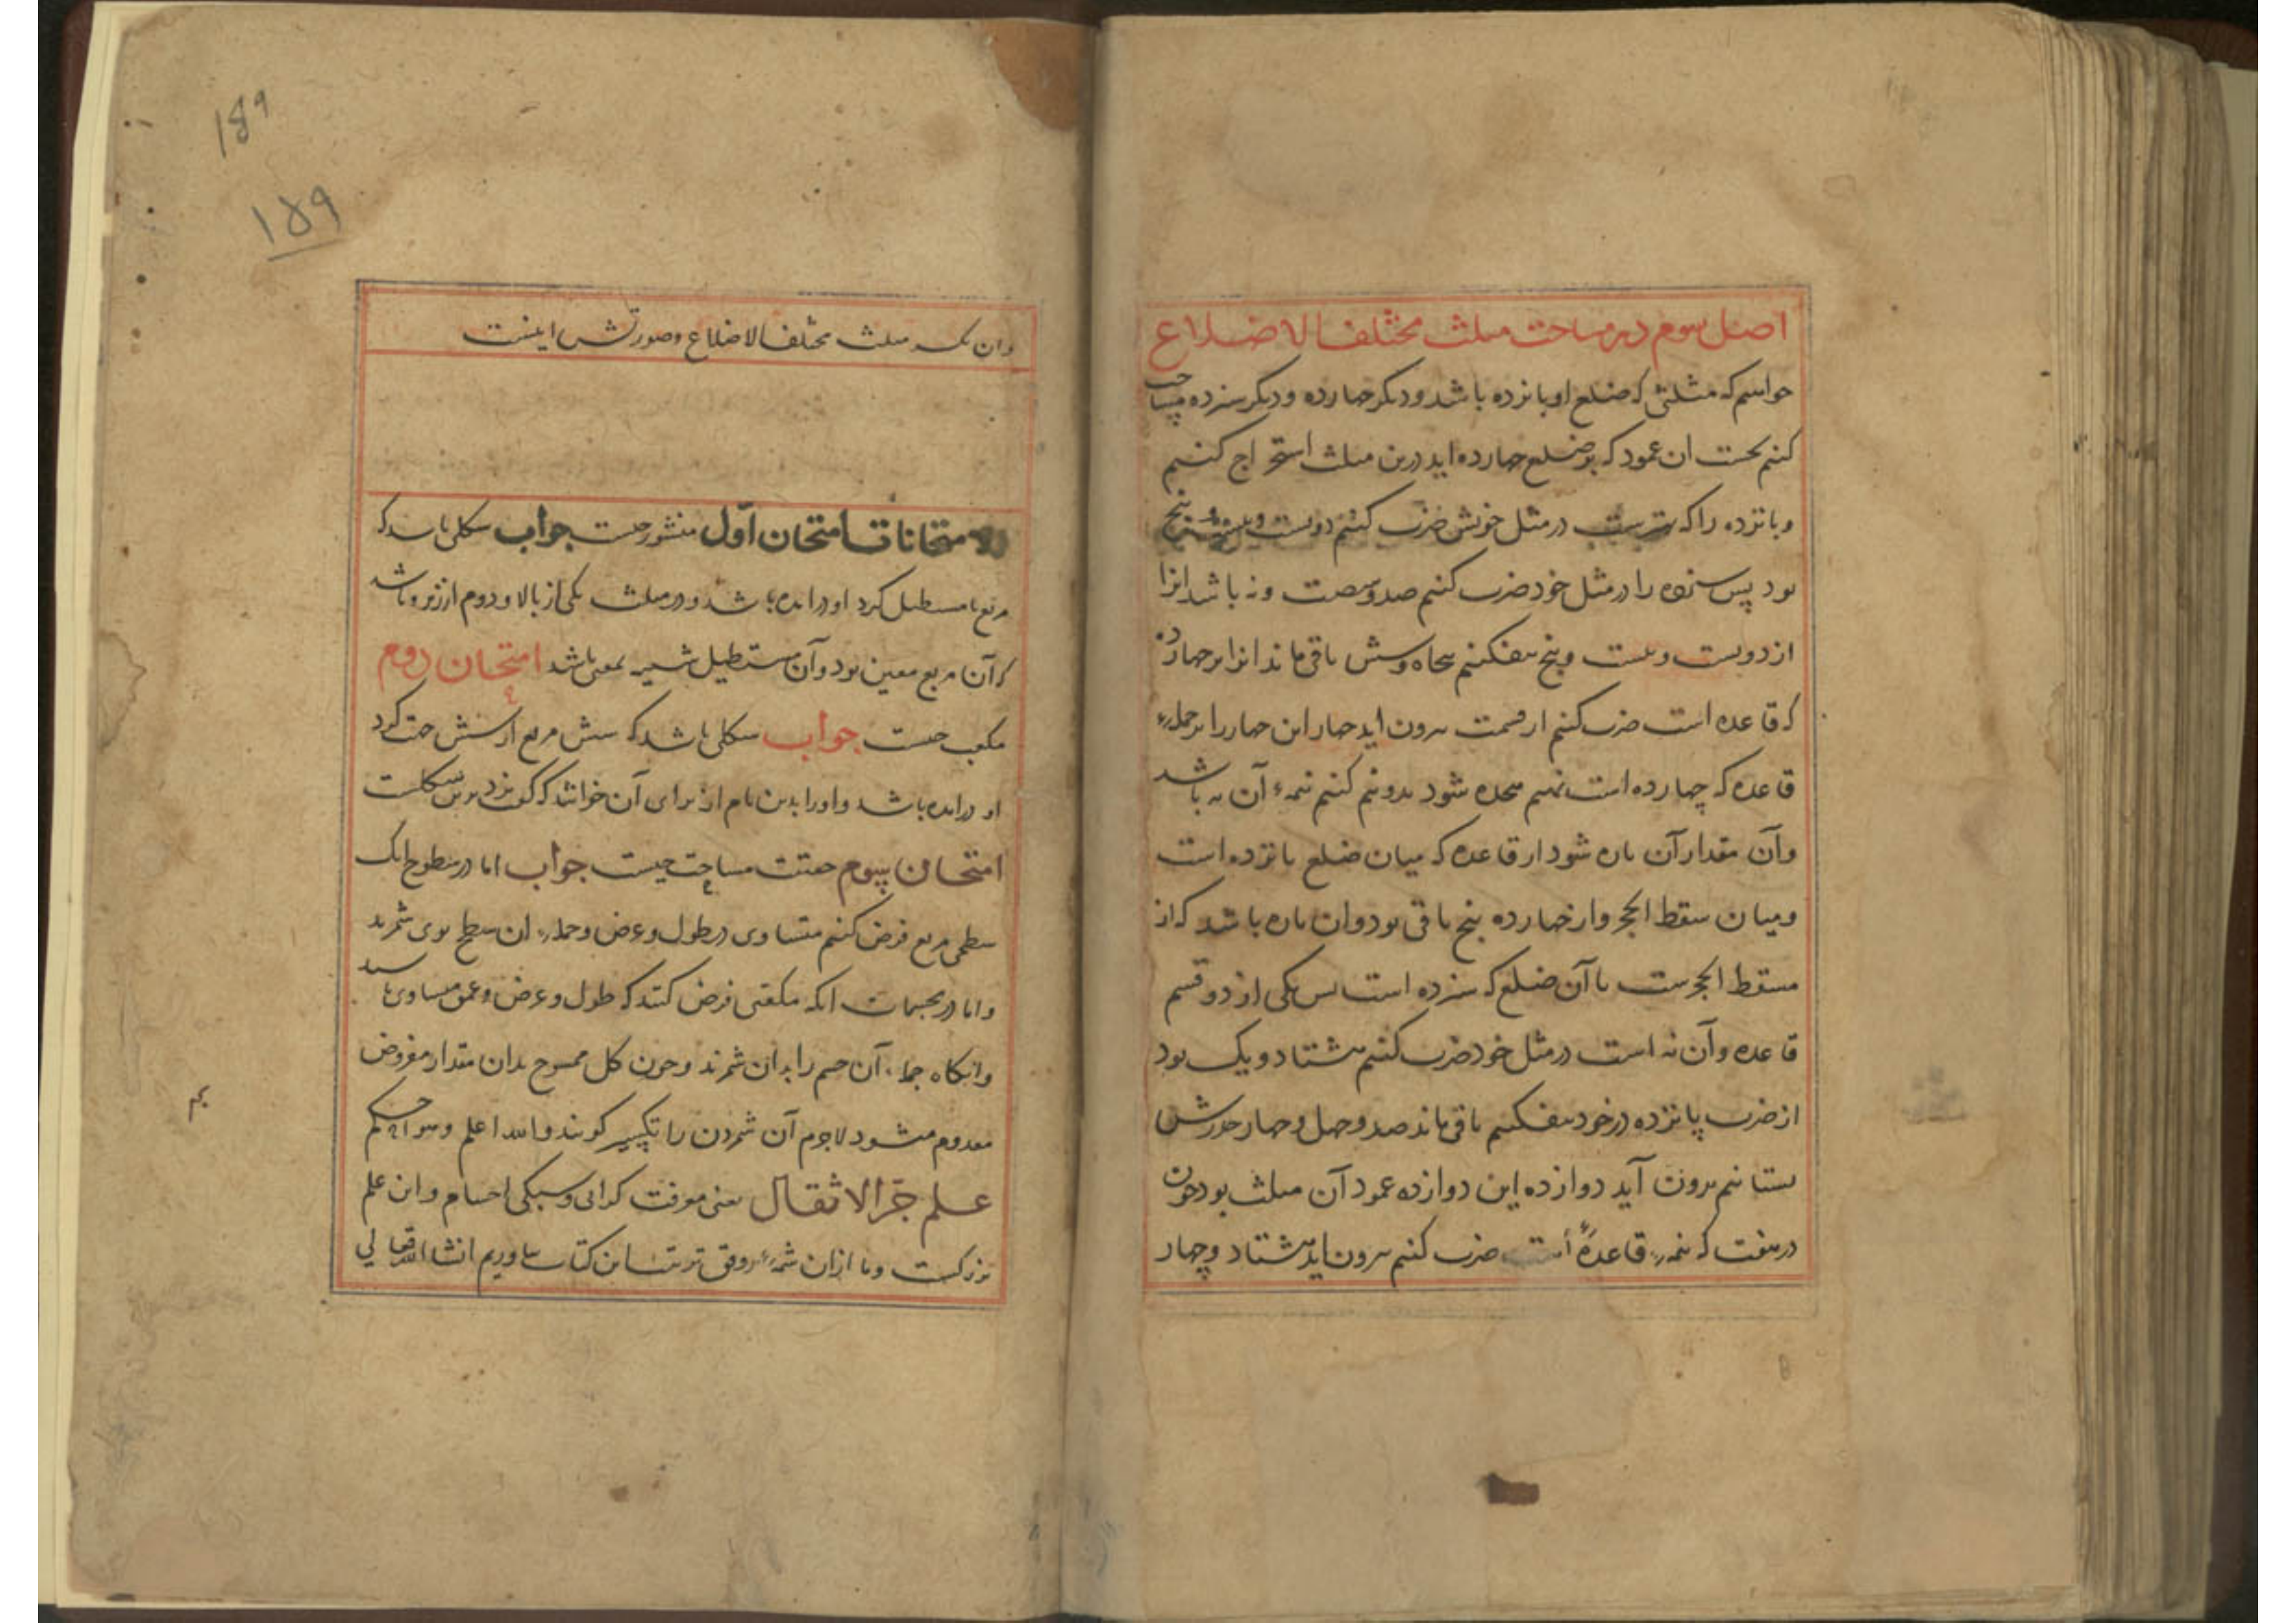 اصل سوم در مساحت مثلث مختلف الاضلاع
خواهیم که مثلثی که ضلع او پانزده باشد و دیگر چهارده و دیگر سزده مساحت
کنیم نخست ان عمود که بر ضلع چهارده اید درین مثلث استخراج کنیم
و پانزده را که در مثل خویش ضرب کنیم دویست و بیست و پنج
بود پس سزده را در مثل خود ضرب کنیم صد و شصت و نه باشد انرا
از دویست و بیست و پنج بیفکنیم پنجاه و شش باقی ماند انرا بر چهارده
که قاعده است ضرب کنیم از قسمت بیرون اید چهار این چهار را بر جمله
قاعده که چهارده است نهیم هجده شود بدو نیم کنیم نیمهٔ آن نه باشد
وآن مقدار آن پاره شود از قاعده که میان ضلع پانزده است
و میان سقط الحجر و از چهارده پنج باقی بود و ان پاره باشد که از
مسقط الحجرست تا آن ضلع که سزده است پس یکی از دو قسم
قاعده وآن نه است در مثل خود ضرب کنیم هشتاد و یک بود
از ضرب پانزده در خود بیفکنیم باقی ماند صد و چهل و چهار جذرش
بستانیم برون آید دوازده این دوازده عمود آن مثلث بود چون
در هفت که نیمهٔ قاعدهٔ است ضرب کنیم برون اید هشتاد و چهار
189
۱۵۹
وان تکسیر مثلث مختلف الاضلاع و صورتش اینست
الامتحانات امتحان اول منشور چیست جواب شکلی باشد که
مربع یا مستطیل کرد او درامده باشد و دو مثلث یکی از بالا و دوم از زیر و باشد
که آن مربع معین بود وآن مستطیل شبیه بمعین باشد امتحان دوم
مکعب چیست جواب شکلی باشد که شش مربع از شش جهت کرد
او درامده باشد و او را بدین نام از برای آن خوانند که کعب نرد برین شکلست
امتحان سوم حقیقت مساحت چیست جواب اما در سطوح انک
سطحی مربع فرض کنیم متساوی در طول و عرض و جملهٔ ان سطح بوی شمرند
و اما در مجسمات انکه مکعبی فرض کنند که طول و عرض و عمق متساوی باشد
و انکاه جملهٔ آن جسم را بدان شمرند و چون کل ممسوح بدان مقدار مفروض
معدوم میشود لاجرم آن شمردن را تکسیر کویند والله اعلم و هو احکم
علم جر الاثقال یعنی معرفت کرانی و سبکی اجسام و این علم
بزرکست و ما ازان شمهٔ بر وفق ترتیب این کتاب بیاوریم انشاالله تعالی